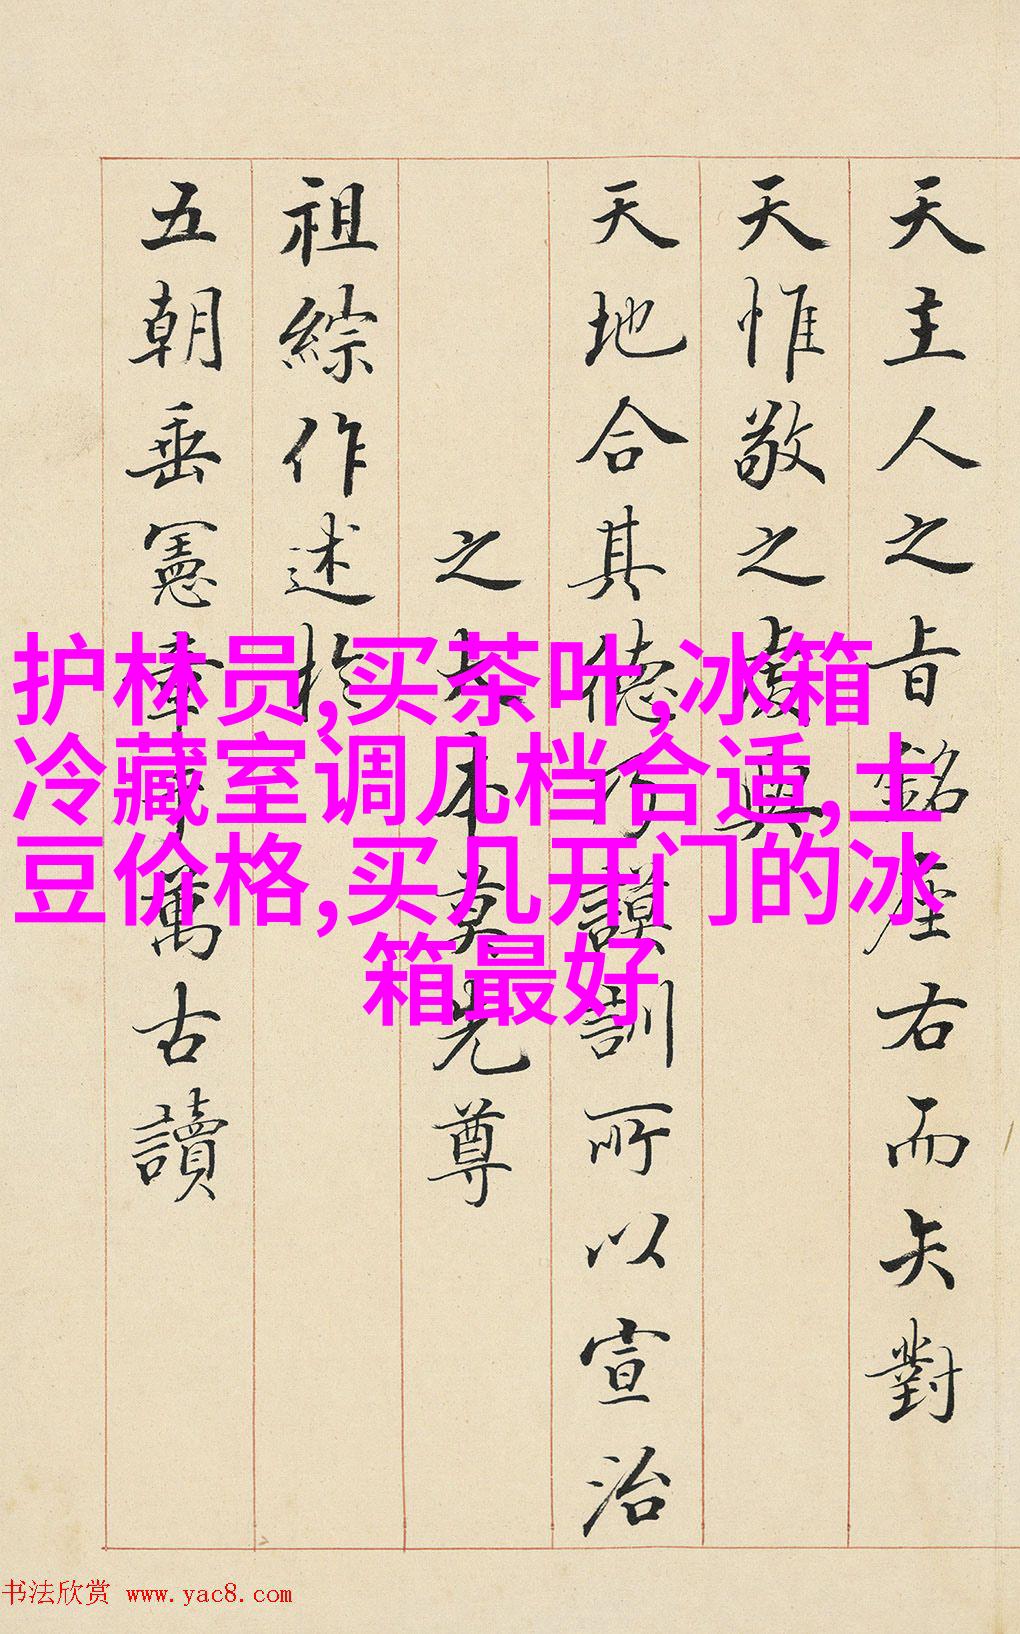 天主人之旨銘座右而矢對
天惟敬之虔與
天地合其德乃謨訓所以宣治
之大本莫先尊
祖綜作述於
五朝垂憲章於萬古讀
护林员,买茶叶,冰箱
冷藏室调几档合适,土
豆价格,买几开门的冰
箱最好
书法欣赏 www.yac8.com